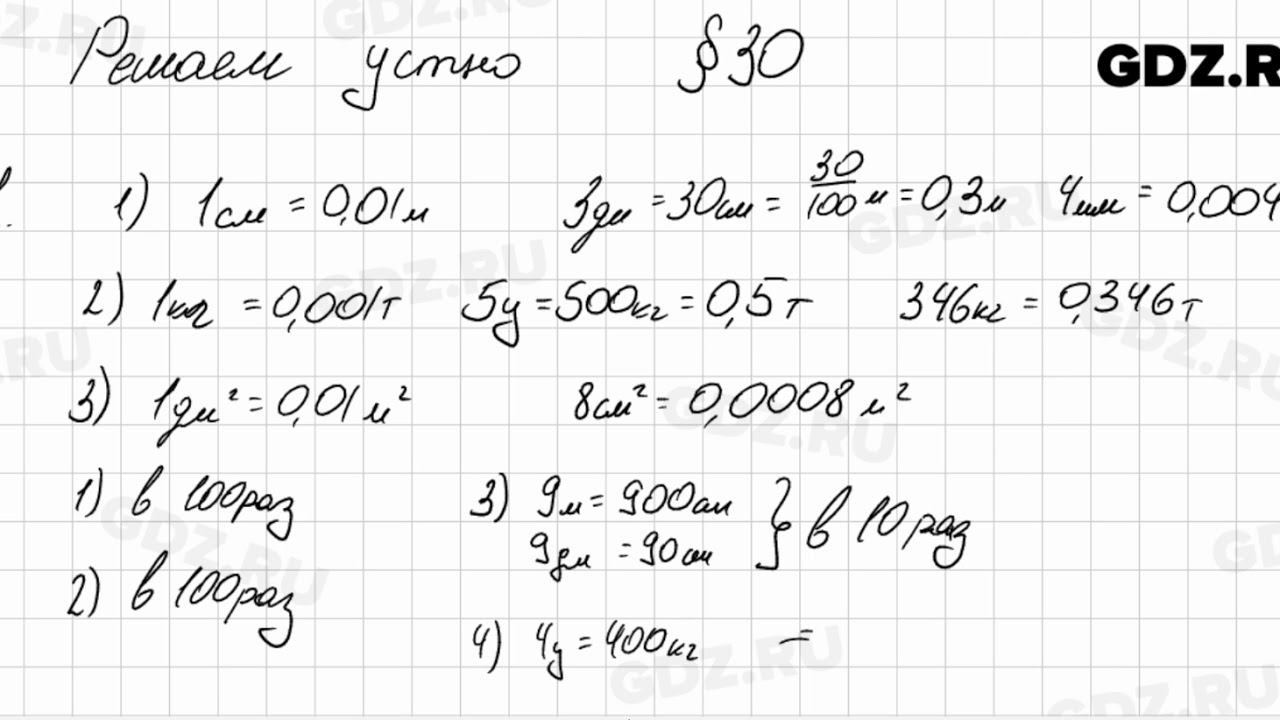 Решаем устно §30
GDZ.R
1) 1см = 0,01м 3дм = 30см = 30/100 м = 0,3м 4мм = 0,004
2) 1кг = 0,001т 5ц = 500кг = 0,5т 346кг = 0,346т
3) 1дм² = 0,01м² 8см² = 0,0008 м²
1) в 100раз
2) в 100раз
3) 9м = 900см
9дм = 90см } в 10 раз
4) 4ц = 400кг =